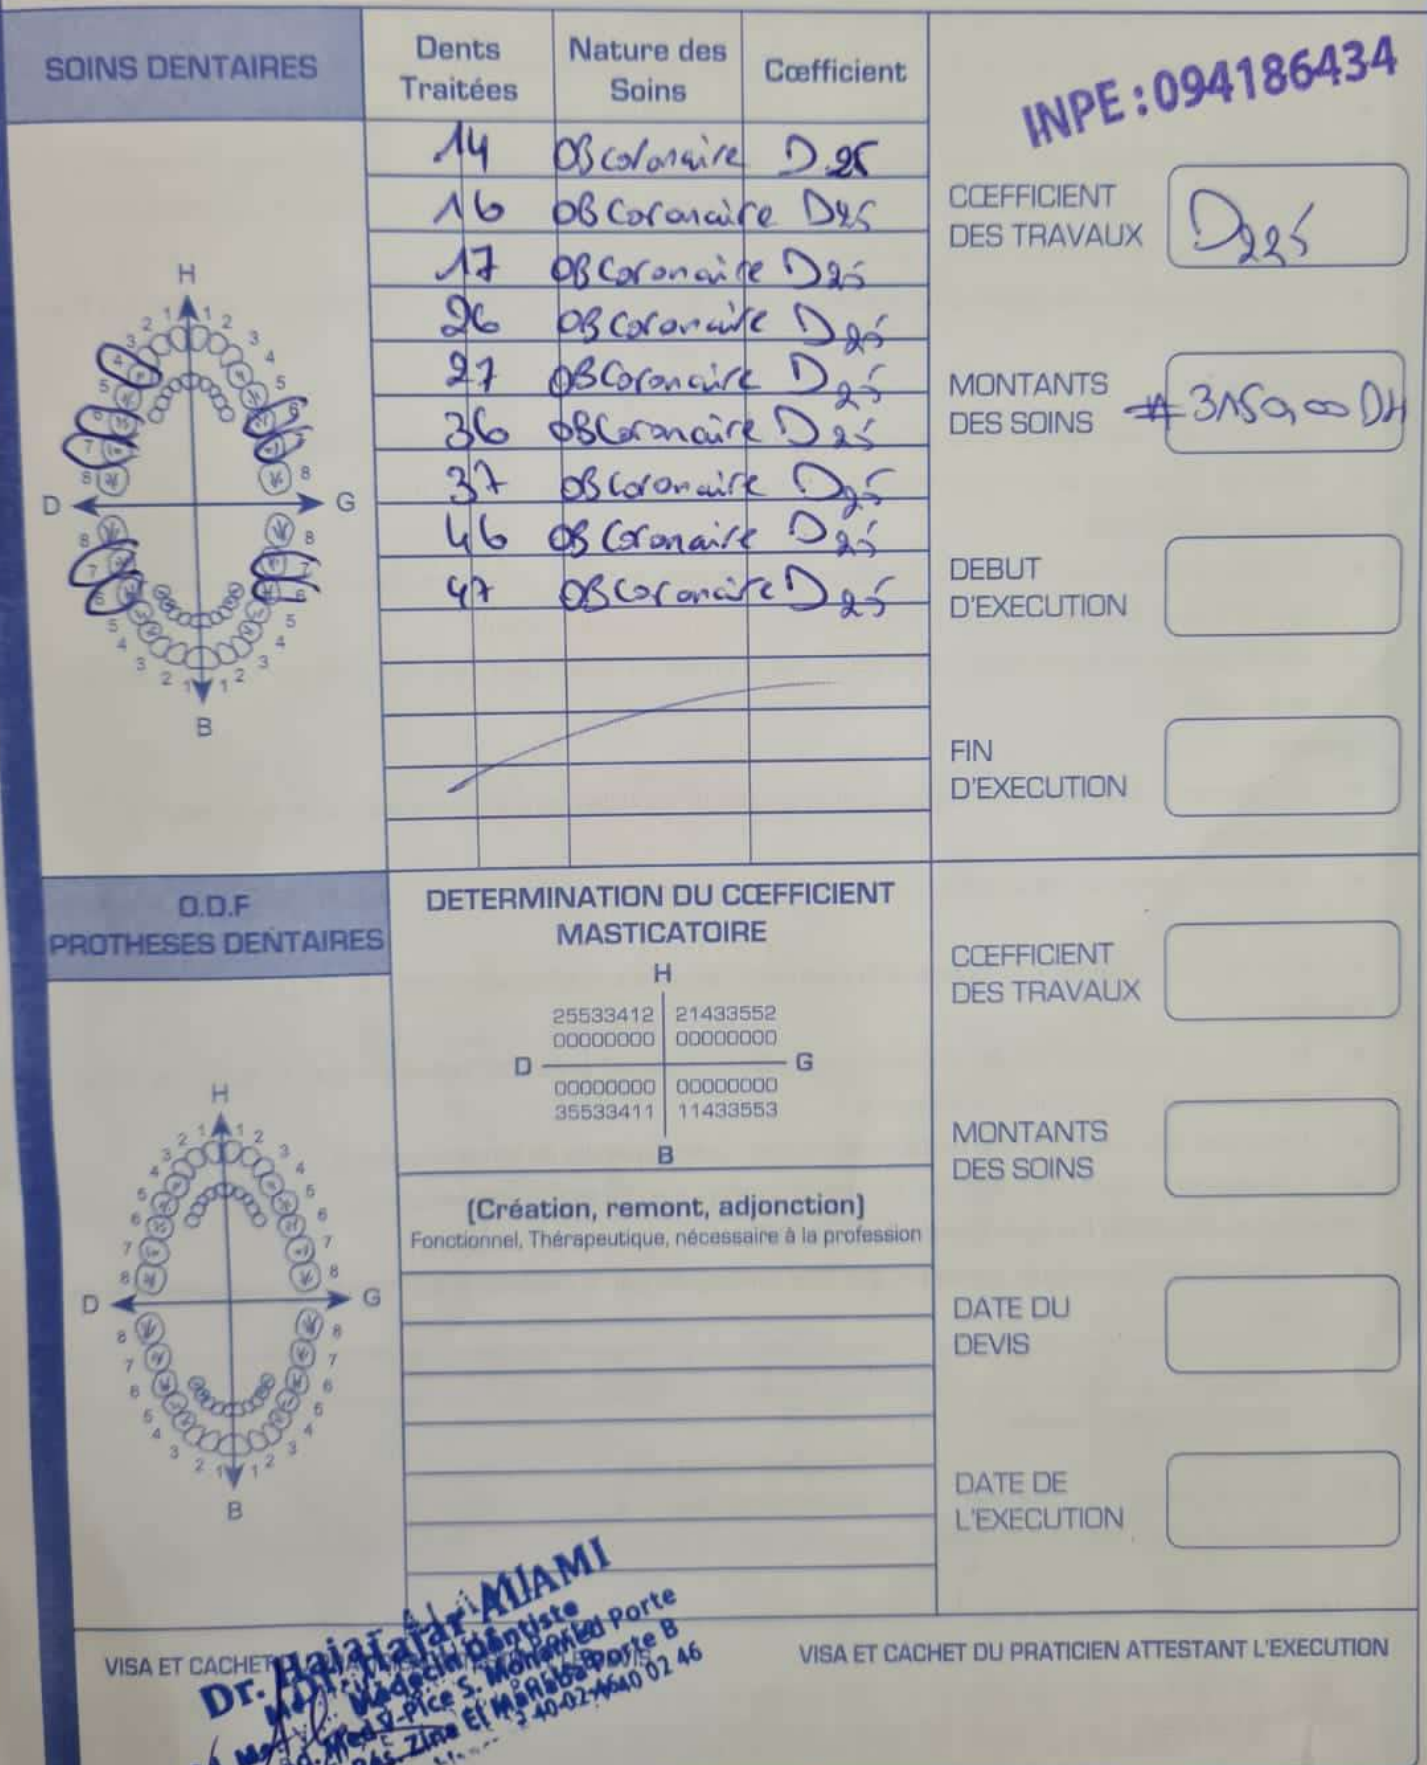 SOINS DENTAIRES
Dents Traitées | Nature des Soins | Cœfficient
14 OB coronaire D 25
16 OB Coronaire D25
17 OB Coronaire D25
26 OB Coronaire D25
27 OB Coronaire D25
36 OB Coronaire D25
37 OB Coronaire D25
46 OB Coronaire D25
47 OB Coronaire D25
INPE : 094186434
CŒFFICIENT
DES TRAVAUX
D225
MONTANTS
DES SOINS
# 3150,00 DH
DEBUT
D'EXECUTION
FIN
D'EXECUTION
H
1 1
2 2
3 3
4 4
5 5
6 6
7 7
8 8
D G
8 8
7 7
6 6
5 5
4 4
3 3
2 2
1 1
B
O.D.F
PROTHESES DENTAIRES
DETERMINATION DU CŒFFICIENT
MASTICATOIRE
H
25533412 21433552
00000000 00000000
D G
00000000 00000000
35533411 11433553
B
(Création, remont, adjonction)
Fonctionnel, Thérapeutique, nécessaire à la profession
CŒFFICIENT
DES TRAVAUX
MONTANTS
DES SOINS
DATE DU
DEVIS
DATE DE
L'EXECUTION
H
1 1
2 2
3 3
4 4
5 5
6 6
7 7
8 8
D G
8 8
7 7
6 6
5 5
4 4
3 3
2 2
1 1
B
VISA ET CACHET
Dr. Hajar ALAMI
Médecin Dentiste
VISA ET CACHET DU PRATICIEN ATTESTANT L'EXECUTION